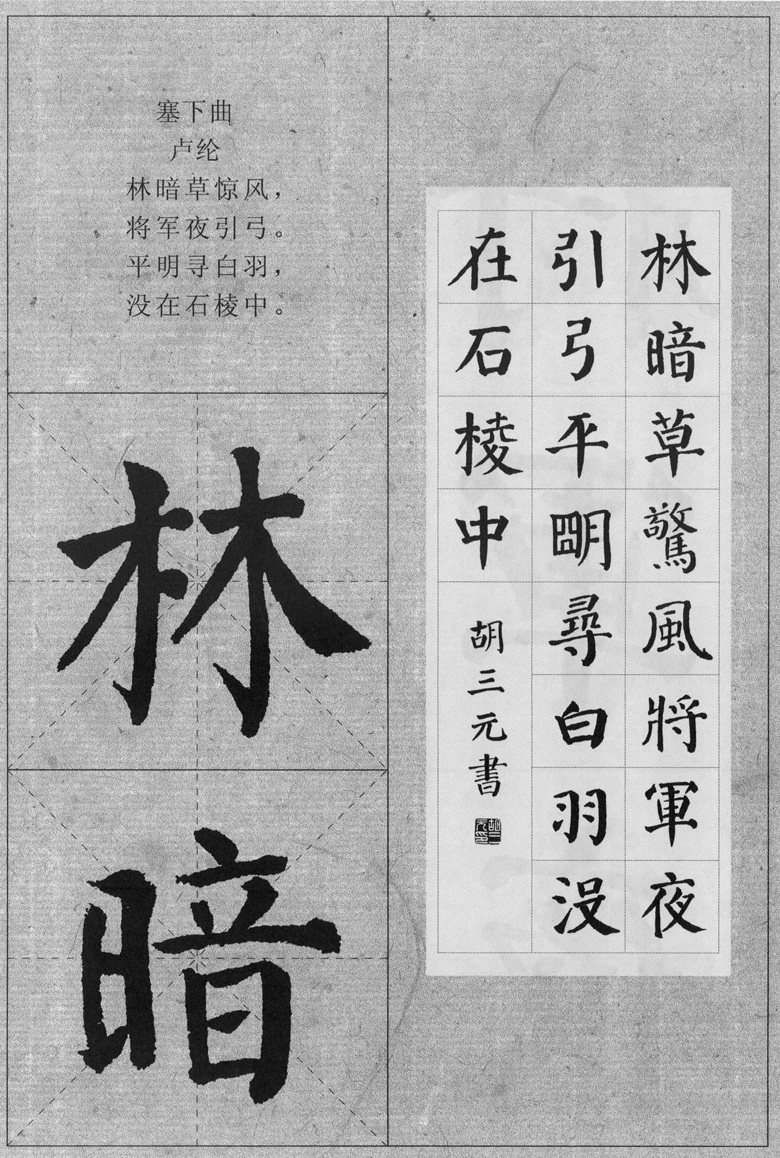 塞下曲
卢纶
林暗草惊风，
将军夜引弓。
平明寻白羽，
没在石棱中。
林
暗
林暗草驚風將軍夜
引弓平明尋白羽没
在石棱中
胡三元書